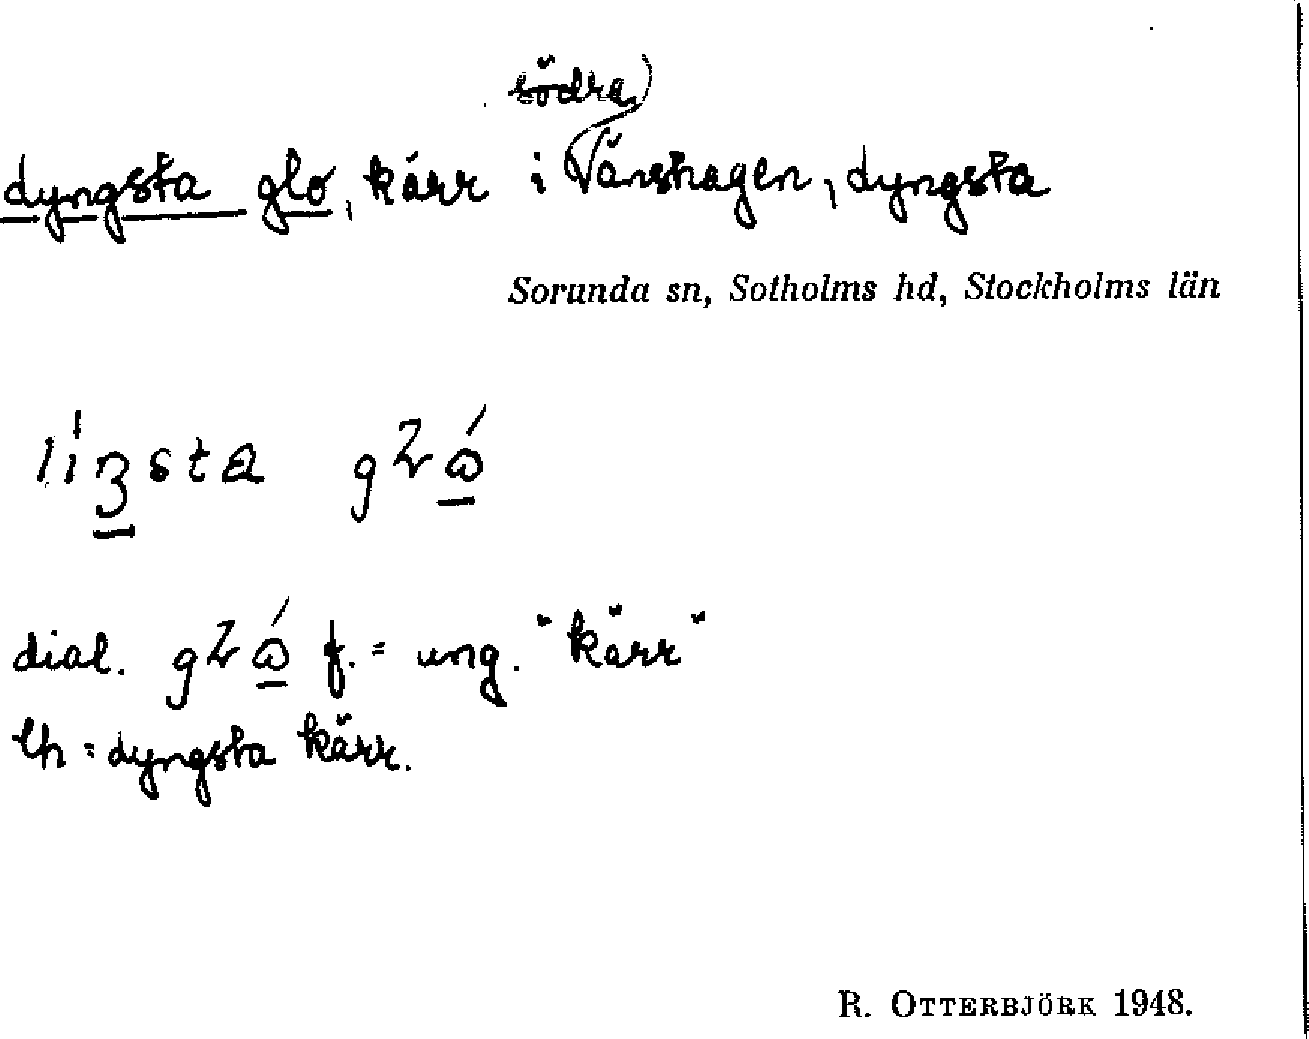 södra
dyngsta glo, kärr i Vänshagen, dyngsta
Sorunda sn, Sotholms hd, Stockholms län
dial. f. = ung. "kärr"
lh = dyngsta kärr.
R. OTTERBJÖRK 1948.